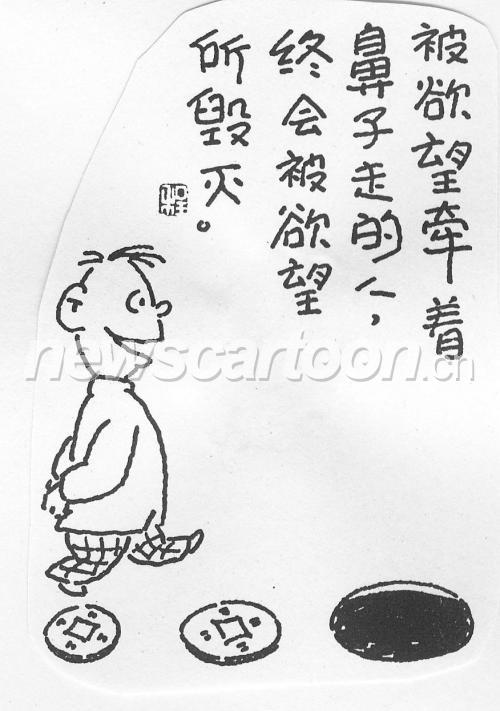 被欲望牵着
鼻子走的人，
终会被欲望
所毁灭。
程
newscartoon.cn